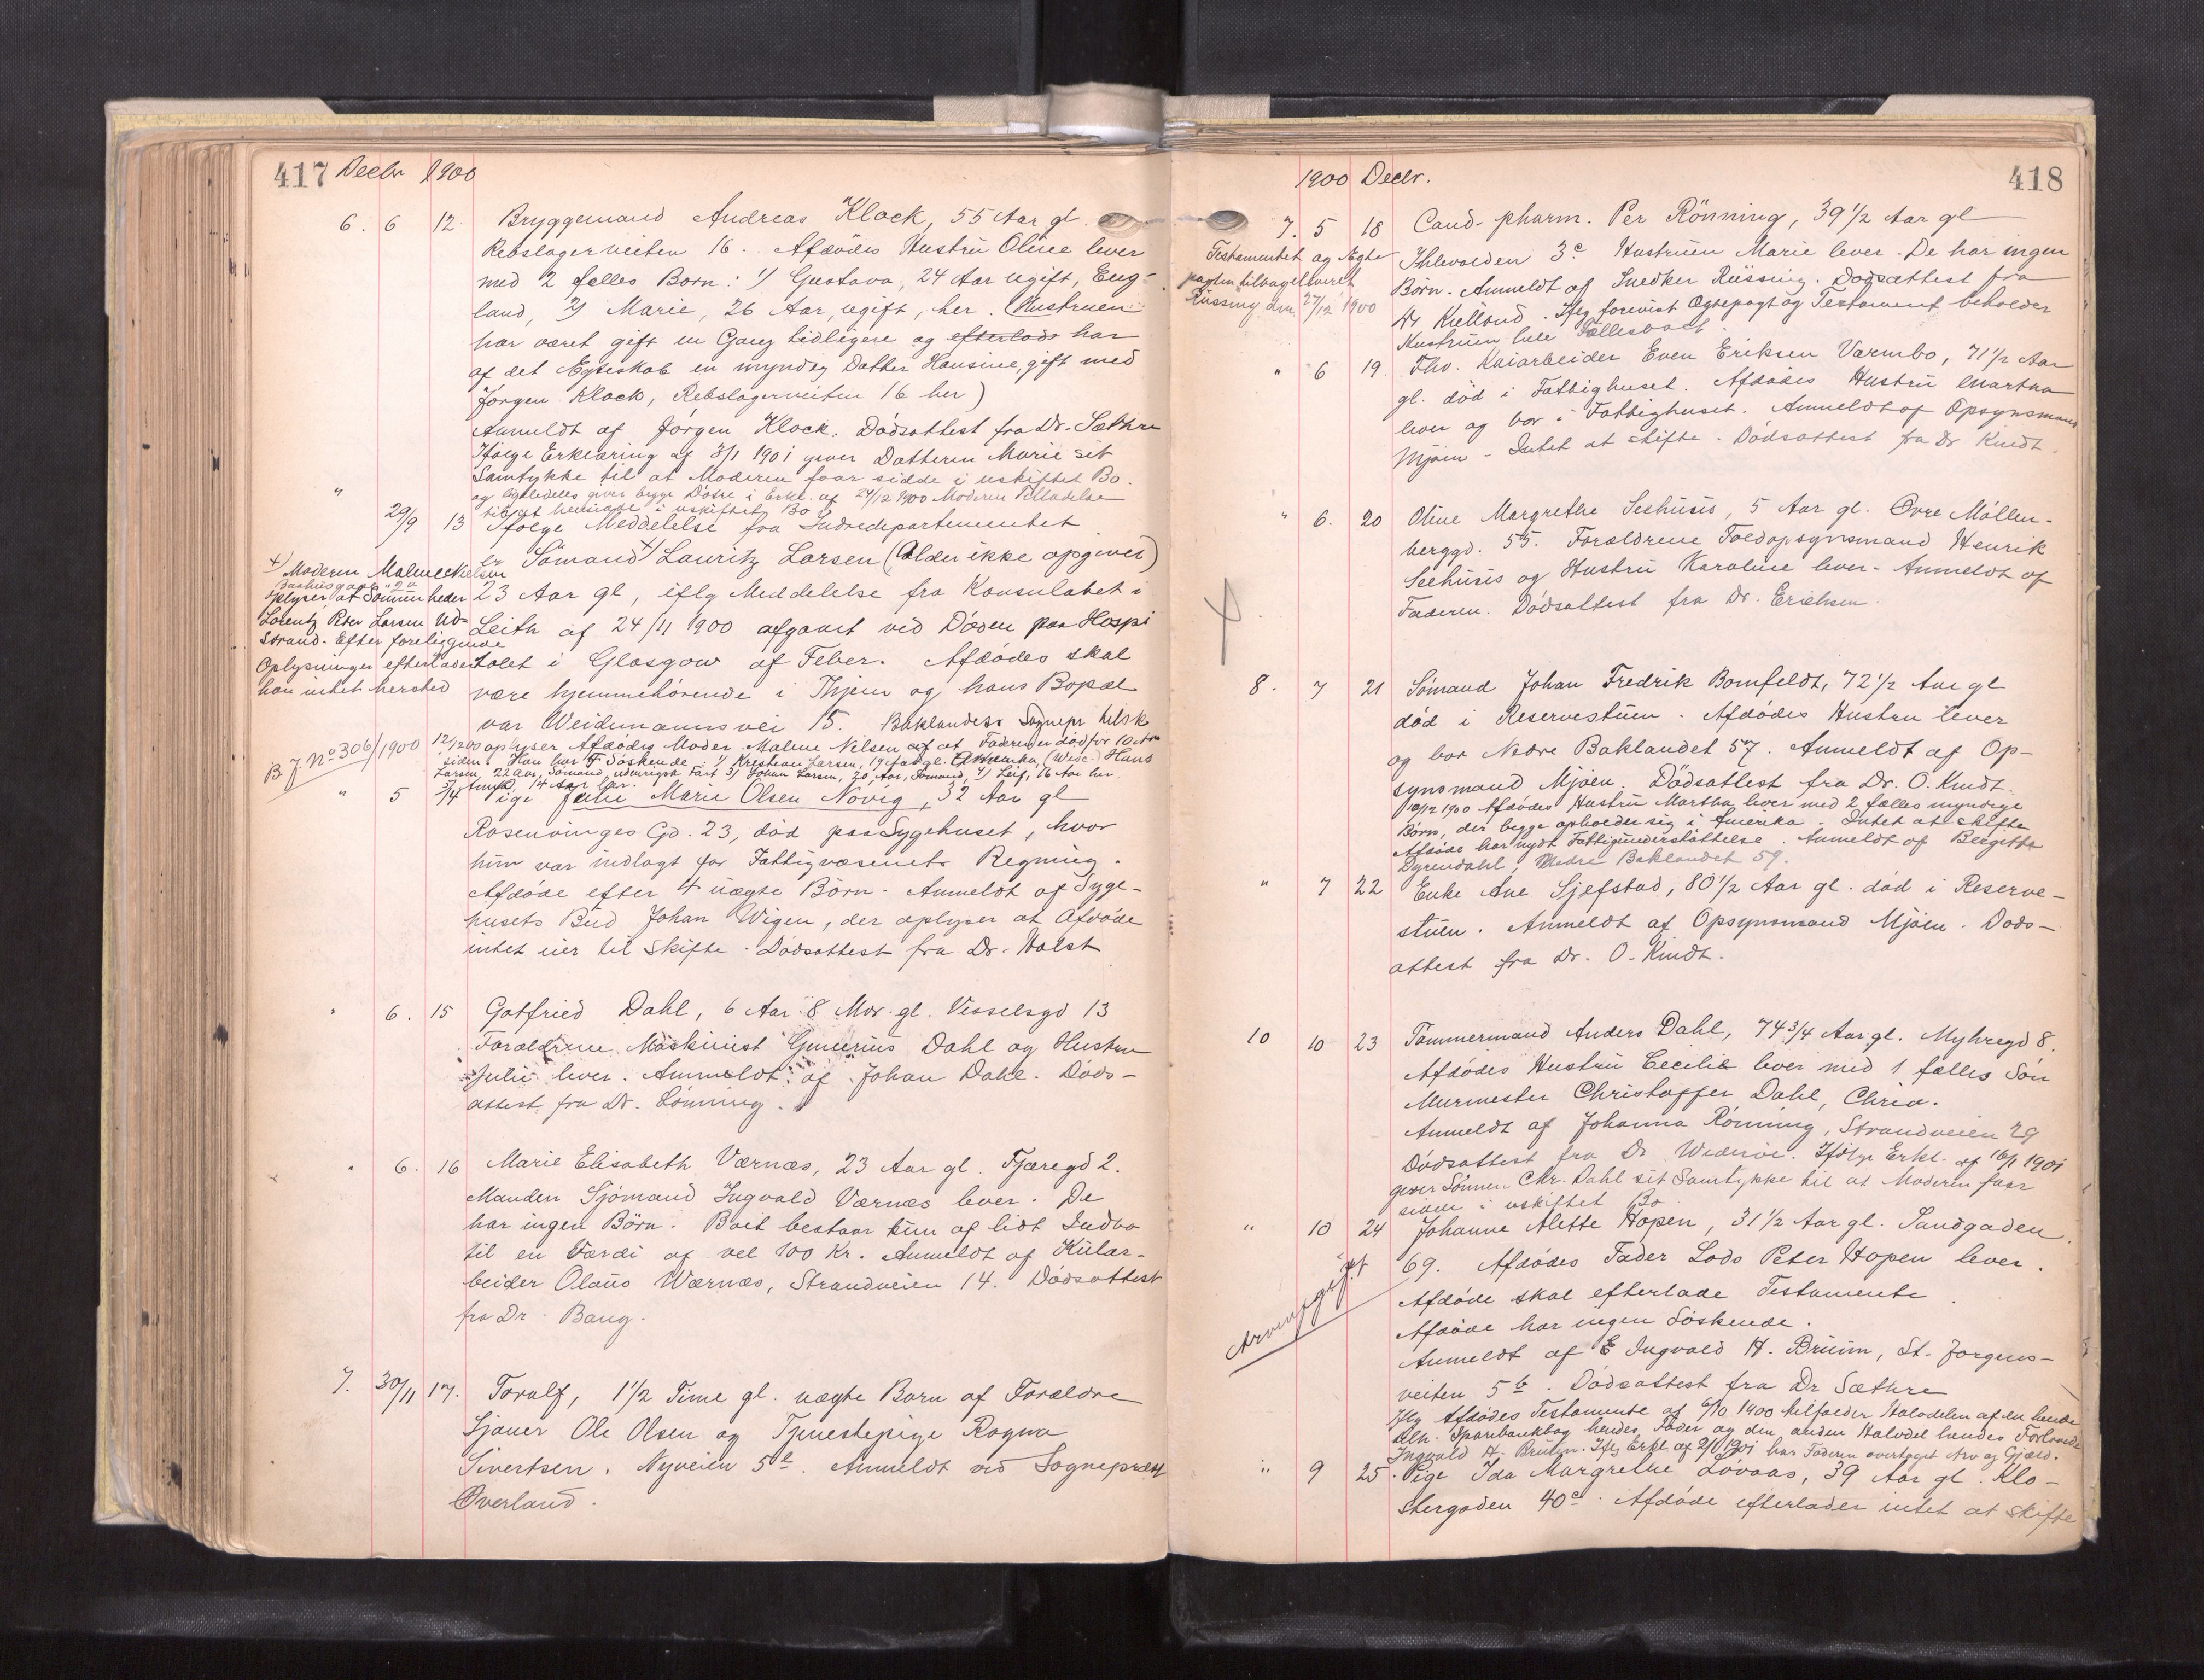 417 Decbr 1900
6. 6 12 Bryggemand Andreas Klock, 55 Aar gl.
Rebslagerveiten 16. Afdødes Hustru Oline lever
med 2 fælles Børn: 1/ Gustava, 24 Aar ugift, Eng-
land, 2/ Marie, 26 Aar, ugift, her. (Hustruen
har været gift en Gang tidligere og efterlods har
af det Ægteskab en myndig Datter Hansine, gift med
Jørgen Klock, Rebslagerveiten 16 her)
Anmeldt af Jørgen Klock. Dødsattest fra Dr. Sæthre
Ifølge Erklæring af 3/1 1901 giver Datteren Marie sit
Samtykke til at Moderen faar sidde i uskiftet Bo.
og ligeledes giver begge Døtre i Erkl. af 24/12 1900 Moderen Tilladelse
til at hensidde i uskiftet Bo
" 29/9 13 Ifølge Meddelelse fra Indredepartementet
er Sømand +) Lauritz Larsen (Alder ikke opgivet)
23 Aar gl, iflg Meddelelse fra Konsulatet i
Leith af 24/11 1900 afgaaet ved Døden paa Hospi
talet i Glasgow af Feber. Afdødes skal
være hjemmehørende i Thjem og hans Bopæl
var Weidemannsvei 15. Baklandets Sognepr
12/12 00 oplyser Afdødes Moder Malene Nilsen af at Faderen er død for 10 Aar
siden. Han har 5 Søskende: 1/ Kristian Larsen, 19 Aar gl. Amerika, Hans
Larsen, 22 Aar, Sømand, udenrigsk Fart 3/ Johan Larsen, 20 Aar, Sømand, 4/ Leif, 16 Aar her
14 Aar her.
+) Moderen Malene Nielsen
oplyser at Sønnen heder
Lorentz Peter Larsen Ud-
strand. Efter foreliggende
Oplysninger efterlader
han intet hersted
B J. No 306/1900
" 5 14 Pige Julie Marie Olsen Novig, 32 Aar gl
Rosenvinges Gd. 23, død paa Sygehuset, hvor
hun var indlagt for Fattigvæsenets Regning.
Afdøde efter 4 uægte Børn. Anmeldt af Syge-
husets Bud Johan Wigen, der oplyser at Afdøde
intet eier til Skifte. Dødsattest fra Dr. Holst
" 6. 15 Gotfried Dahl, 6 Aar 8 Mdr. gl. Visselsgd 13
Forældrene Maskinist Gunerius Dahl og Hustru
Julie lever. Anmeldt af Johan Dahl. Døds-
attest fra Dr. Lønning.
" 6. 16 Marie Elisabeth Værnæs, 23 Aar gl. Fjæregd 2.
Manden Sjømand Ingvald Værnæs lever. De
har ingen Børn. Boet bestaar kun af lidt Indbo
til en Værdi af vel 100 Kr. Anmeldt af Kular-
beider Olaus Wærnæs, Strandveien 14. Dødsattest
fra Dr. Bang.
7. 30/11 17. Toralf, 1 1/2 Time gl. uægte Barn af Forældre
Sjauer Ole Olsen og Tjenestepige Ragna
Sivertsen. Nyveien 5 b. Anmeldt ved Sogneprest
Øverland.
1900 Decbr. 418
7. 5 18 Cand. pharm. Per Rönning, 39 1/2 Aar gl
Ihlevolden 3 c Hustruen Marie lever. De har ingen
Børn. Anmeldt af Snedker Rüssing. Dødsattest fra
Dr Kielland. Iflg forevist Ægtepagt og Testament beholder
Hustruen hele Fællesboet.
Testamentet og Ægte-
pagten tilbageleveret
Rüssing den 27/12 1900
" 6 19. Fhv. Kaiarbeider Even Eriksen Varmbo, 71 1/2 Aar
gl. død i Fattighuset. Afdødes Hustru Martha
lever og bor i Fattighuset. Anmeldt af Opsynsmand
Mjøen - Intet at skifte. Dødsattest fra Dr Kindt.
" 6. 20 Oline Margrethe Seehusis, 5 Aar gl. Øvre Møllen-
berggd. 55. Forældrene Toldopsynsmand Henrik
Seehusis og Hustru Karoline lever. Anmeldt af
Faderen. Dødsattest fra Dr. Erichsen.
8. 7 21 Sømand Johan Fredrik Bomfeldt, 72 1/2 Aar gl
død i Reservestuen. Afdødes Hustru lever
og bor Nedre Baklandet 57. Anmeldt af Op-
synsmand Mjøen. Dødsattest fra Dr. O. Kindt.
12/12 1900 Afdødes Hustru Martha lever med 2 fælles myndige
Børn, der begge opholder sig i Amerika. Intet at skifte
Afdøde har nydt Fattigunderstøttelse. Anmeldt af Bergitte
Dyrendahl, Nedre Baklandet 57.
" 7 22 Enke Ane Sjefstad, 80 1/2 Aar gl. død i Reserve-
stuen. Anmeldt af Opsynsmand Mjøen. Døds-
attest fra Dr. O. Kindt.
10 10 23 Tømmermand Anders Dahl, 74 3/4 Aar gl. Myhregd 8.
Afdødes Hustru Cecilie lever med 1 fælles Søn
Murmester Christoffer Dahl, Chria.
Anmeldt af Johanna Rønning, Strandveien 29
Dødsattest fra Dr Widerøe. Ifølge Erkl. af 16/1 1901
giver Sønnen Chr. Dahl sit Samtykke til at Moderen faar
sidde i uskiftet Bo
" 10 24 Johanne Alette Hopen, 31 1/2 Aar gl. Sandgaden
69. Afdødes Fader Lods Peter Hopen lever.
Afdøde skal efterlade Testamente
Afdøde har ingen Søskende.
Anmeldt af E Ingvald H. Bruun, St. Jørgens-
veiten 5 b. Dødsattest fra Dr Sæthre
Iflg Afdødes Testamente af 6/10 1900 tilfalder Halvdelen af en hende
tilh. Sparebankbog hendes Fader og den anden Halvdel hendes Forlovede
Ingvald H. Bruun. Iflg Erkl. af 2/1 1901 har Faderen overtaget Arv og Gjæld.
Arveafgift
" 9 25. Pige Ida Margrethe Løvaas, 39 Aar gl. Klo-
stergaden 40 c. Afdøde efterlader intet at skifte